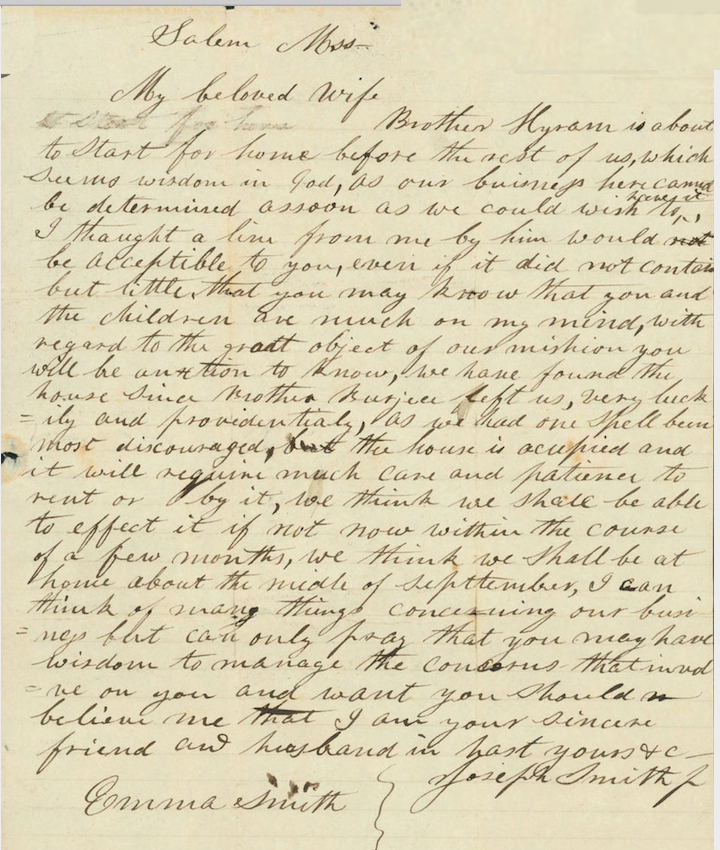 Salem Mss
My beloved Wife
Brother Hyram is about
to start for home before the rest of us, which
seems wisdom in God, as our buisness here can not
be determined assoon as we could wish to have it,
I thought a line from me by him would not
be acceptible to you, even if it did not contain
but little, that you may know that you and
the children are much on my mind, with
regard to the great object of our mishion you
will be anxtion to know, we have found the
house since Brother Burjece left us, very luck
=ily and providentialy, as we had one spell been
most discouraged, but the house is ocupied and
it will require much care and patience to
rent or by it, we think we shall be able
to effect it if not now within the course
of a few months, we think we shall be at
home about the midle of septtember, I can
think of many things concerning our busi-
=ness but can only pray that you may have
wisdom to manage the concerns that invol
=ve on you and want you should
believe me that I am your sincere
friend and husband in hast yours &c-
Joseph Smith Jr
Emma Smith